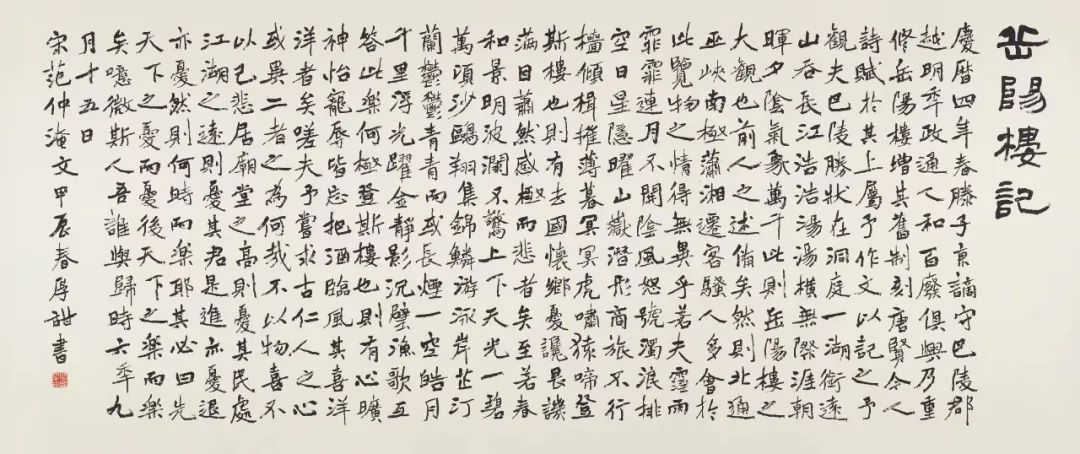 岳陽樓記
慶曆四年春滕子京謫守巴陵郡
越明年政通人和百廢俱興乃重
修岳陽樓增其舊制刻唐賢今人
詩賦於其上屬予作文以記之予
觀夫巴陵勝狀在洞庭一湖銜遠
山吞長江浩浩湯湯橫無際涯朝
暉夕陰氣象萬千此則岳陽樓之
大觀也前人之述備矣然則北通
巫峽南極瀟湘遷客騷人多會於
此覽物之情得無異乎若夫霪雨
霏霏連月不開陰風怒號濁浪排
空日星隱曜山嶽潛形商旅不行
檣傾楫摧薄暮冥冥虎嘯猿啼登
斯樓也則有去國懷鄉憂讒畏譏
滿目蕭然感極而悲者矣至若春
和景明波瀾不驚上下天光一碧
萬頃沙鷗翔集錦鱗游泳岸芷汀
蘭鬱鬱青青而或長煙一空皓月
千里浮光躍金靜影沉璧漁歌互
答此樂何極登斯樓也則有心曠
神怡寵辱皆忘把酒臨風其喜洋
洋者矣嗟夫予嘗求古仁人之心
或異二者之為何哉不以物喜不
以己悲居廟堂之高則憂其民處
江湖之遠則憂其君是進亦憂退
亦憂然則何時而樂耶其必曰先
天下之憂而憂後天下之樂而樂
矣噫微斯人吾誰與歸時六年九
月十五日
宋范仲淹文甲辰春厚甜書